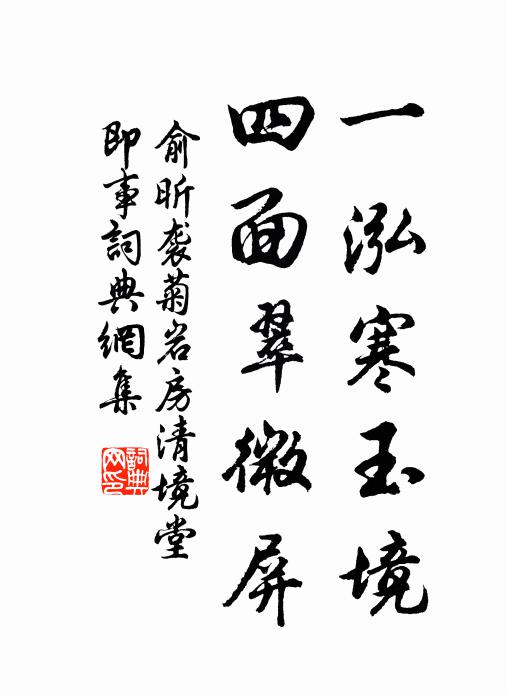 一泓寒玉境
四面翠微屏
俞昕袭菊岩房清境堂
即事詞典網集
詞典网印